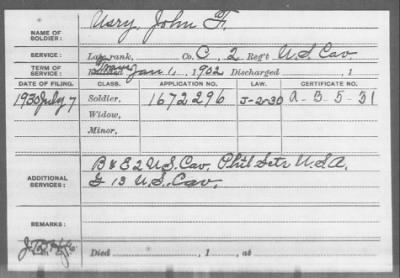 NAME OF SOLDIER: Usry, John F.
SERVICE: Late rank, Co. C, 2 Reg't U.S. Cav.
TERM OF SERVICE: Jan 1, 1902 Discharged , 1
DATE OF FILING. CLASS. APPLICATION NO. LAW. CERTIFICATE NO.
1930 July 7 Soldier, 1672296 J-2-30 A-3-5-31
Widow,
Minor,
ADDITIONAL SERVICES: B & E 2 U.S. Cav. Phil Scts U.S.A.
G 13 U.S. Cav.
REMARKS:
Died , 1 , at